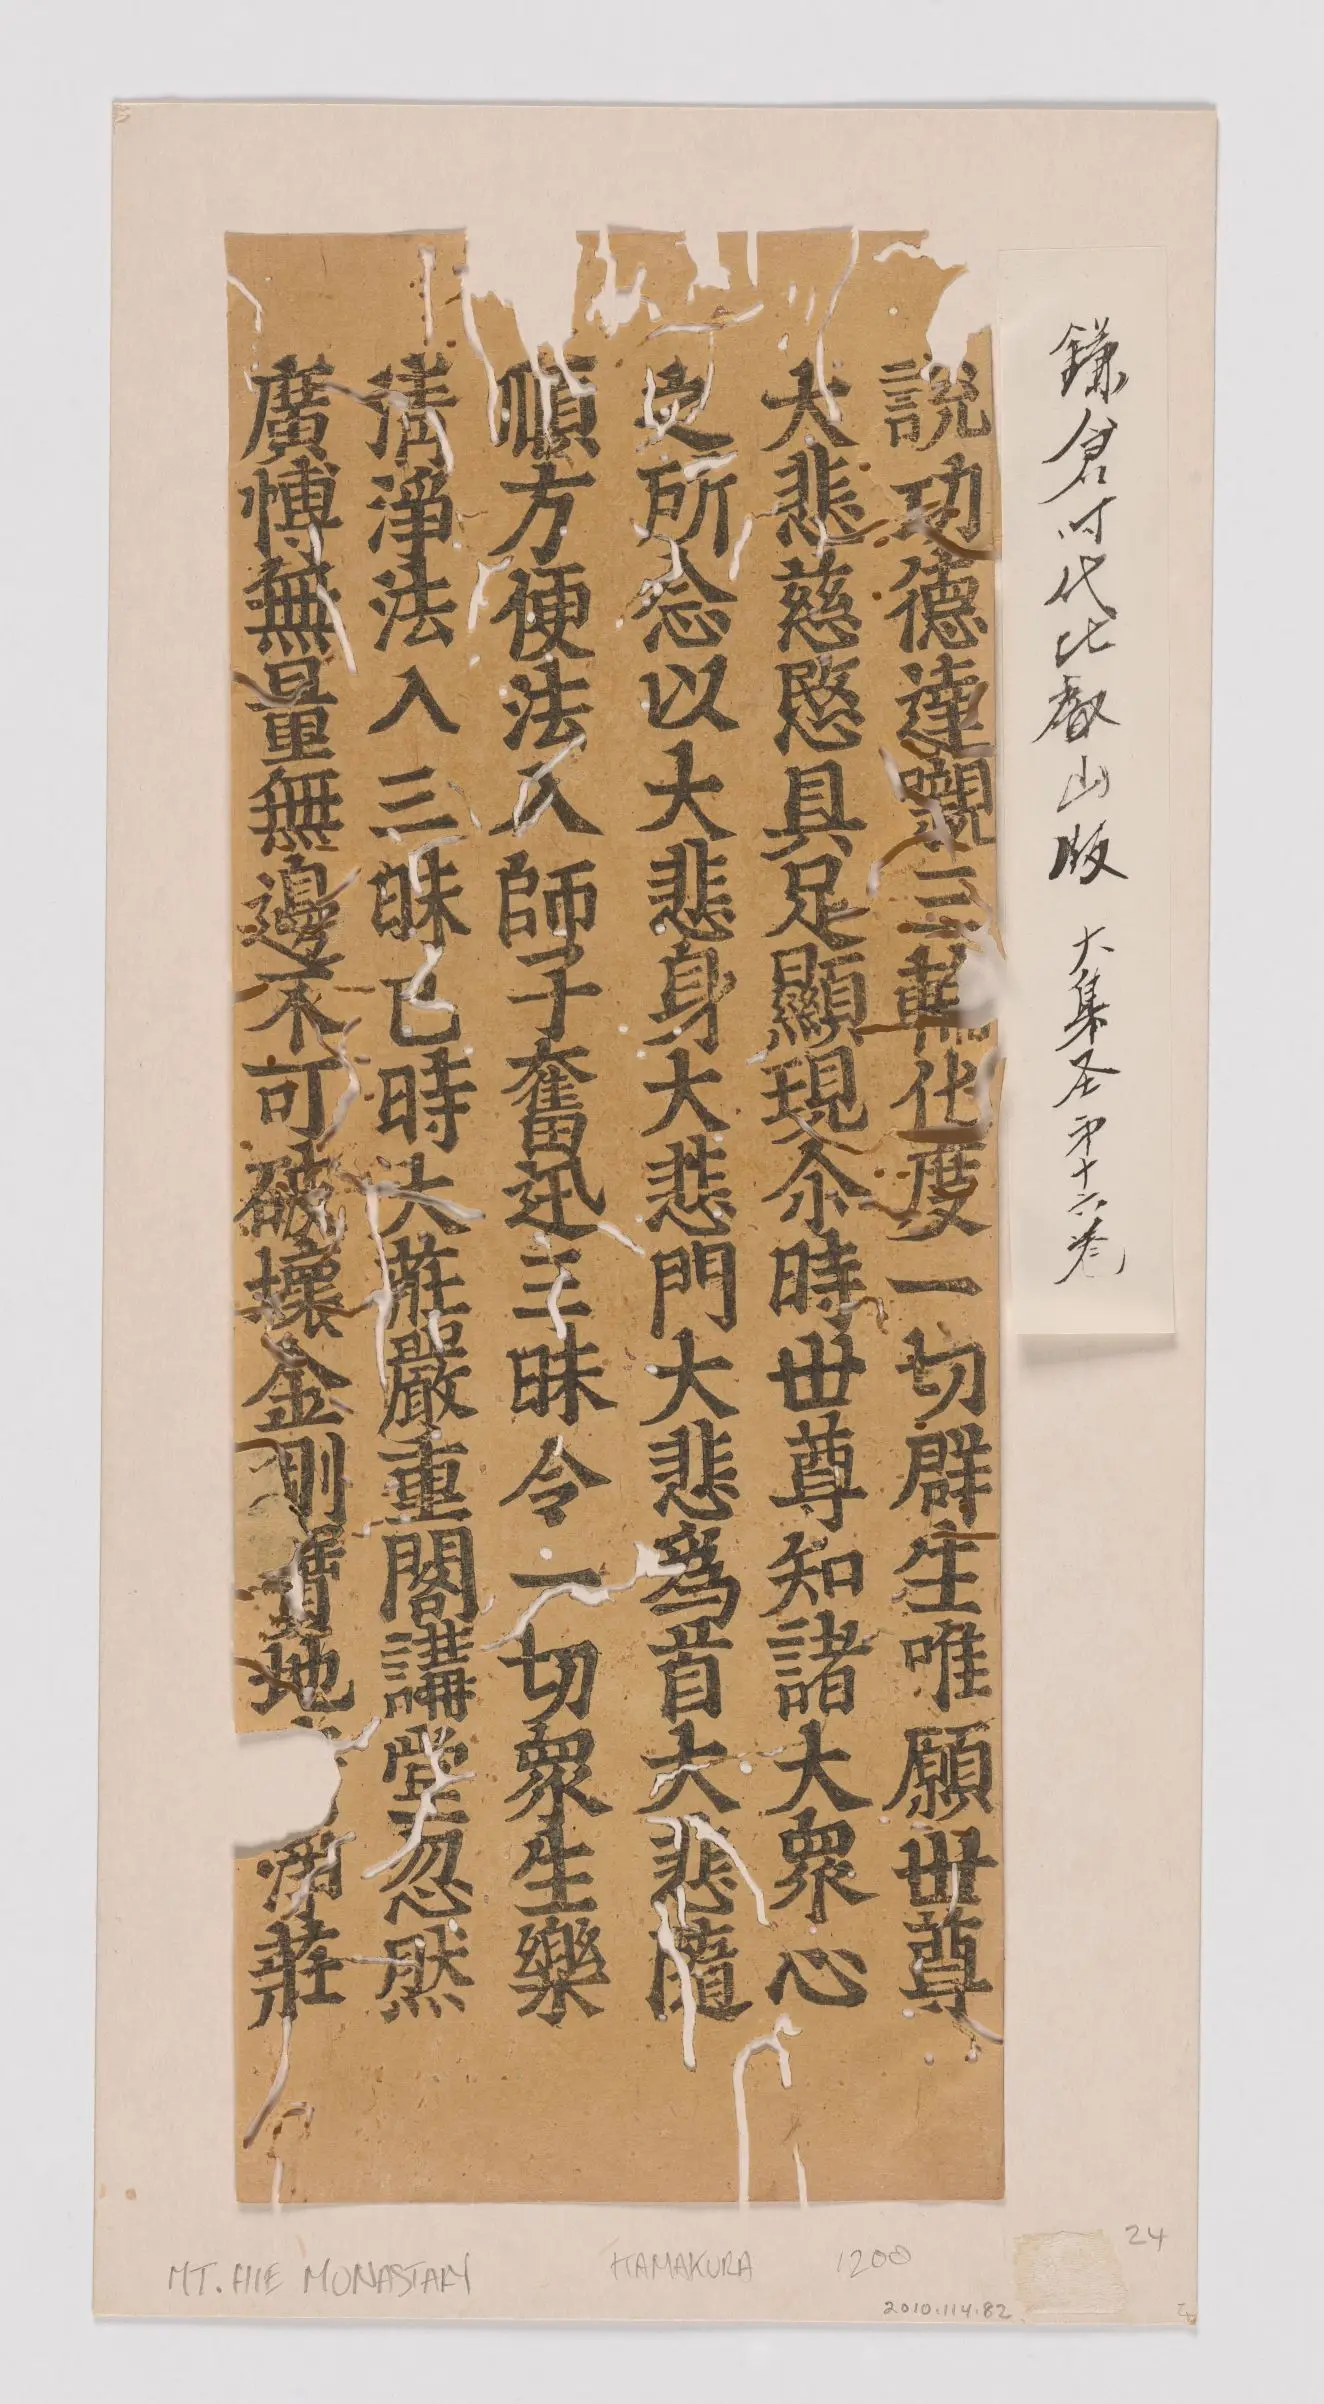 鎌倉时代比叡山版 大集圣第十六卷
說功德達觀三輪化度一切群生唯願世尊
大悲慈愍具足顯現尒時世尊知諸大衆心
之所念以大悲身大悲門大悲爲首大悲隨
順方便法入師子奮迅三昧令一切衆生樂
清淨法入三昧已時大莊嚴重閣講堂忽然
廣愽無量無邊不可破壞金剛寶地淸莊
MT. HIE MONASTARY KAMAKURA 1200
24
2010.114.82